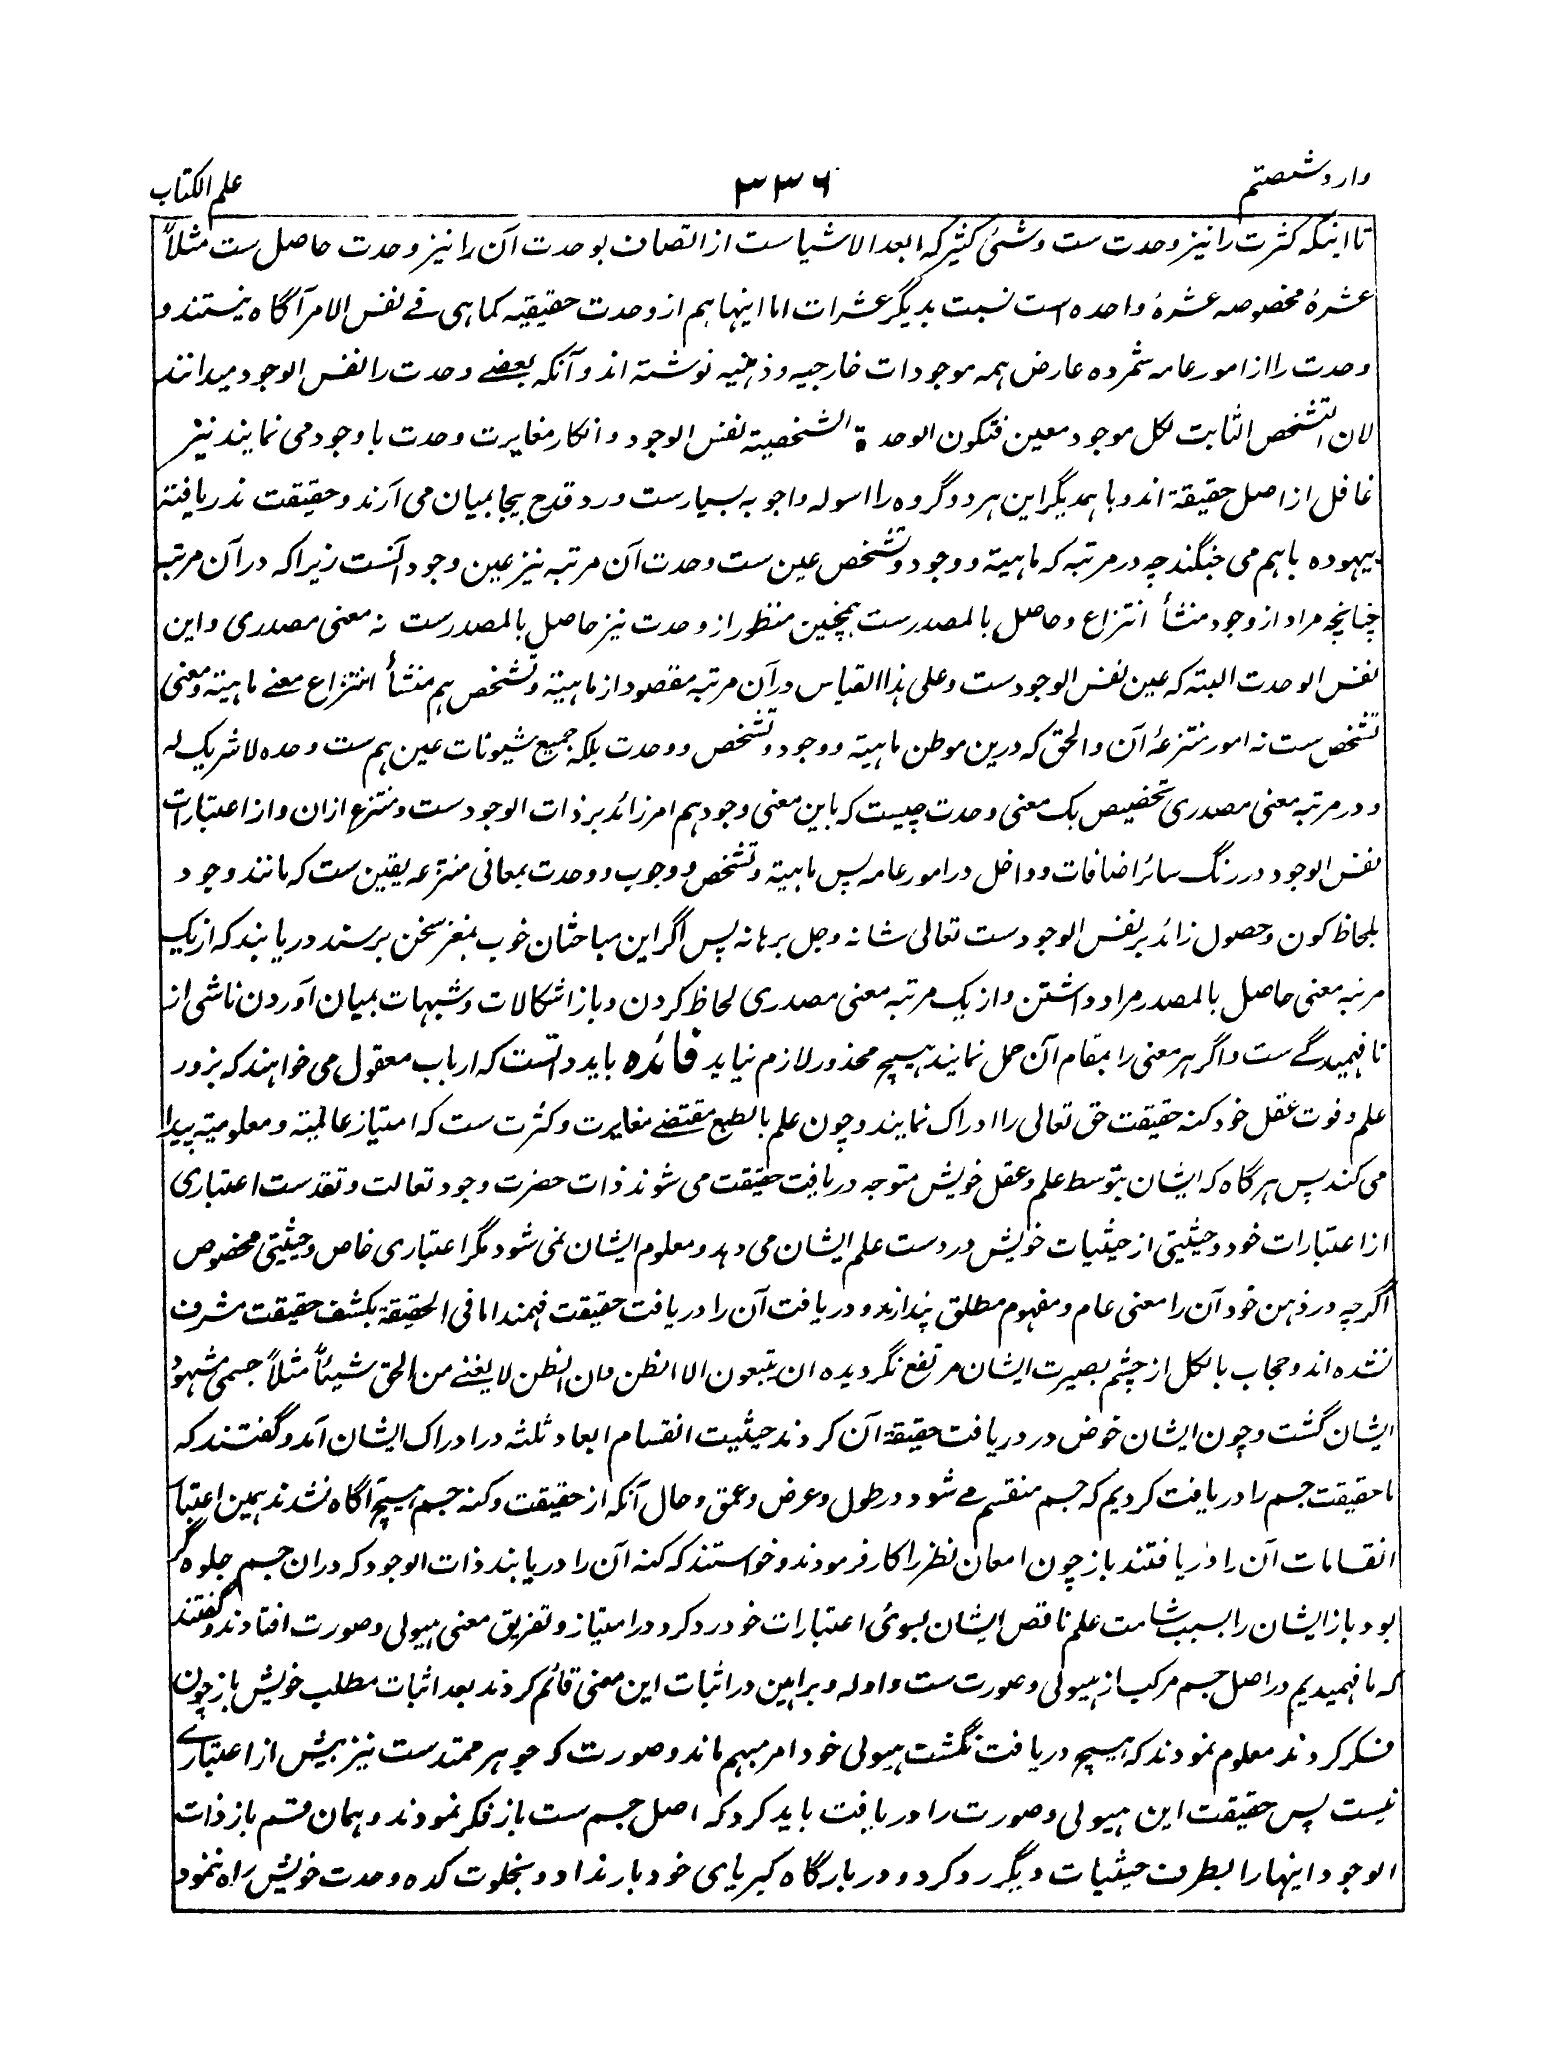 وارد شصتم
۳۳۶
علم الکتاب
تا اینکه کثرت را نیز وحدت ست و شئی کثیر که ابعد الاشیاست از اتصاف بوحدت آن را نیز وحدت حاصل ست مثلاً
عشرهٔ مخصوصه عشرهٔ واحده است نسبت بدیگر عشرات اما اینها هم از وحدت حقیقیه کما هی فے نفس الامر آگاه نیستند و
وحدت را از امور عامه شمرده عارض همه موجودات خارجیه و ذهنیه نوشته اند و آنکه بعضے وحدت را نفس الوجود میدانند
لان التشخص الثابت لکل موجود معین فتکون الوحدة الشخصیة نفس الوجود و انکار مغایرت وحدت با وجود می نمایند نیز
غافل از اصل حقیقة اند و باهمدیگر این هر دو گروه را اسوله و اجوبه بسیارست و رد و قدح بیجا بمیان می آرند و حقیقت ندریافتة
بیهوده باهم می جنگند چه در مرتبه که ماهیة و وجود و تشخص عین ست وحدت آن مرتبه نیز عین وجود آنست زیرا که در آن مرتبه
چنانچه مراد از وجود منشأ انتزاع و حاصل بالمصدرست همچنین منظور از وحدت نیز حاصل بالمصدرست نه معنی مصدری و این
نفس الوحدت البته که عین نفس الوجودست و علی هذا القیاس در آن مرتبه مقصود از ماهیة و تشخص هم منشأ انتزاع معنے ماهیة و معنی
تشخص ست نه امور منتزعهٔ آن و الحق که درین موطن ماهیة و وجود و تشخص و وحدت بلکه جمیع شیونات عین هم ست وحده لاشریک له
و در مرتبه معنی مصدری تخصیص یک معنی وحدت چیست که باین معنی وجود هم امر زائد بر ذات الوجود ست و منتزع ازان و از اعتبارات
نفس الوجود در رنگ سائر اضافات و داخل در امور عامه پس ماهیة و تشخص و وجوب و وحدت بمعانی منتزعه یقین ست که مانند وجود
بلحاظ کون و حصول زائد بر نفس الوجودست تعالی شانه و جل برهانه پس اگر این مباحثان خوب بمغز سخن برسند دریابند که از یک
مرتبه معنی حاصل بالمصدر مراد داشتن و از یک مرتبه معنی مصدری لحاظ کردن و باز اشکالات و شبهات بمیان آوردن ناشی از
نافهمیدگے ست و اگر هر معنی را بمقام آن حمل نمایند هیچ محذور لازم نیاید فائده باید دانست که ارباب معقول می خواهند که بزور
علم و قوت عقل خود کنه حقیقت حق تعالی را ادراک نمایند و چون علم بالطبع مقتضے مغایرت و کثرت ست که امتیاز عالمیة و معلومیة پیدا
می کند پس هرگاه که ایشان بتوسط علم و عقل خویش متوجه دریافت حقیقت می شوند ذات حضرت وجود تعالت و تقدست اعتباری
از اعتبارات خود و حیثیتی از حیثیات خویش در دست علم ایشان می دهد و معلوم ایشان نمی شود مگر اعتباری خاص و حیثیتی مخصوص
اگرچه در ذهن خود آن را معنی عام و مفهوم مطلق پندارند و دریافت آن را دریافت حقیقت فهمند اما فی الحقیقة بکشف حقیقت مشرف
نشده اند و حجاب بالکل از چشم بصیرت ایشان مرتفع نگردیده ان یتبعون الا الظن وان الظن لا یغنے من الحق شیئاً مثلاً جسمی مشهود
ایشان گشت و چون ایشان خوض در دریافت حقیقة آن کردند حیثیت انقسام ابعاد ثلثه در ادراک ایشان آمد و گفتند که
ما حقیقت جسم را دریافت کردیم که جسم منقسم مے شود در طول و عرض و عمق و حال آنکه از حقیقت و کنه جسم هیچ آگاه نشدند همین اعتبار
انقسامات آن را دریافتند باز چون امعان نظر را کار فرمودند و خواستند که کنه آن را دریابند ذات الوجود که دران جسم جلوه گر
بود باز ایشان را بسبب شامت علم ناقص ایشان بسوئ اعتبارات خود رد کرد و در امتیاز و تفریق معنی هیولی و صورت افتادند و گفتند
که ما فهمیدیم در اصل جسم مرکب از هیولی و صورت ست و ادله و براهین در اثبات این معنی قائم کردند بعد اثبات مطلب خویش باز چون
فکر کردند معلوم نمودند که هیچ دریافت نگشت هیولی خود امر مبهم ماند و صورت که جوهر ممتدست نیز بیش از اعتبارے
نیست پس حقیقت این هیولی و صورت را دریافت باید کرد که اصل جسم ست باز فکر نمودند و همان قسم باز ذات
الوجود اینها را بطرف حیثیات دیگر رد کرد و در بارگاه کبریای خود بار نداد و بخلوت کده وحدت خویش راه ننمود